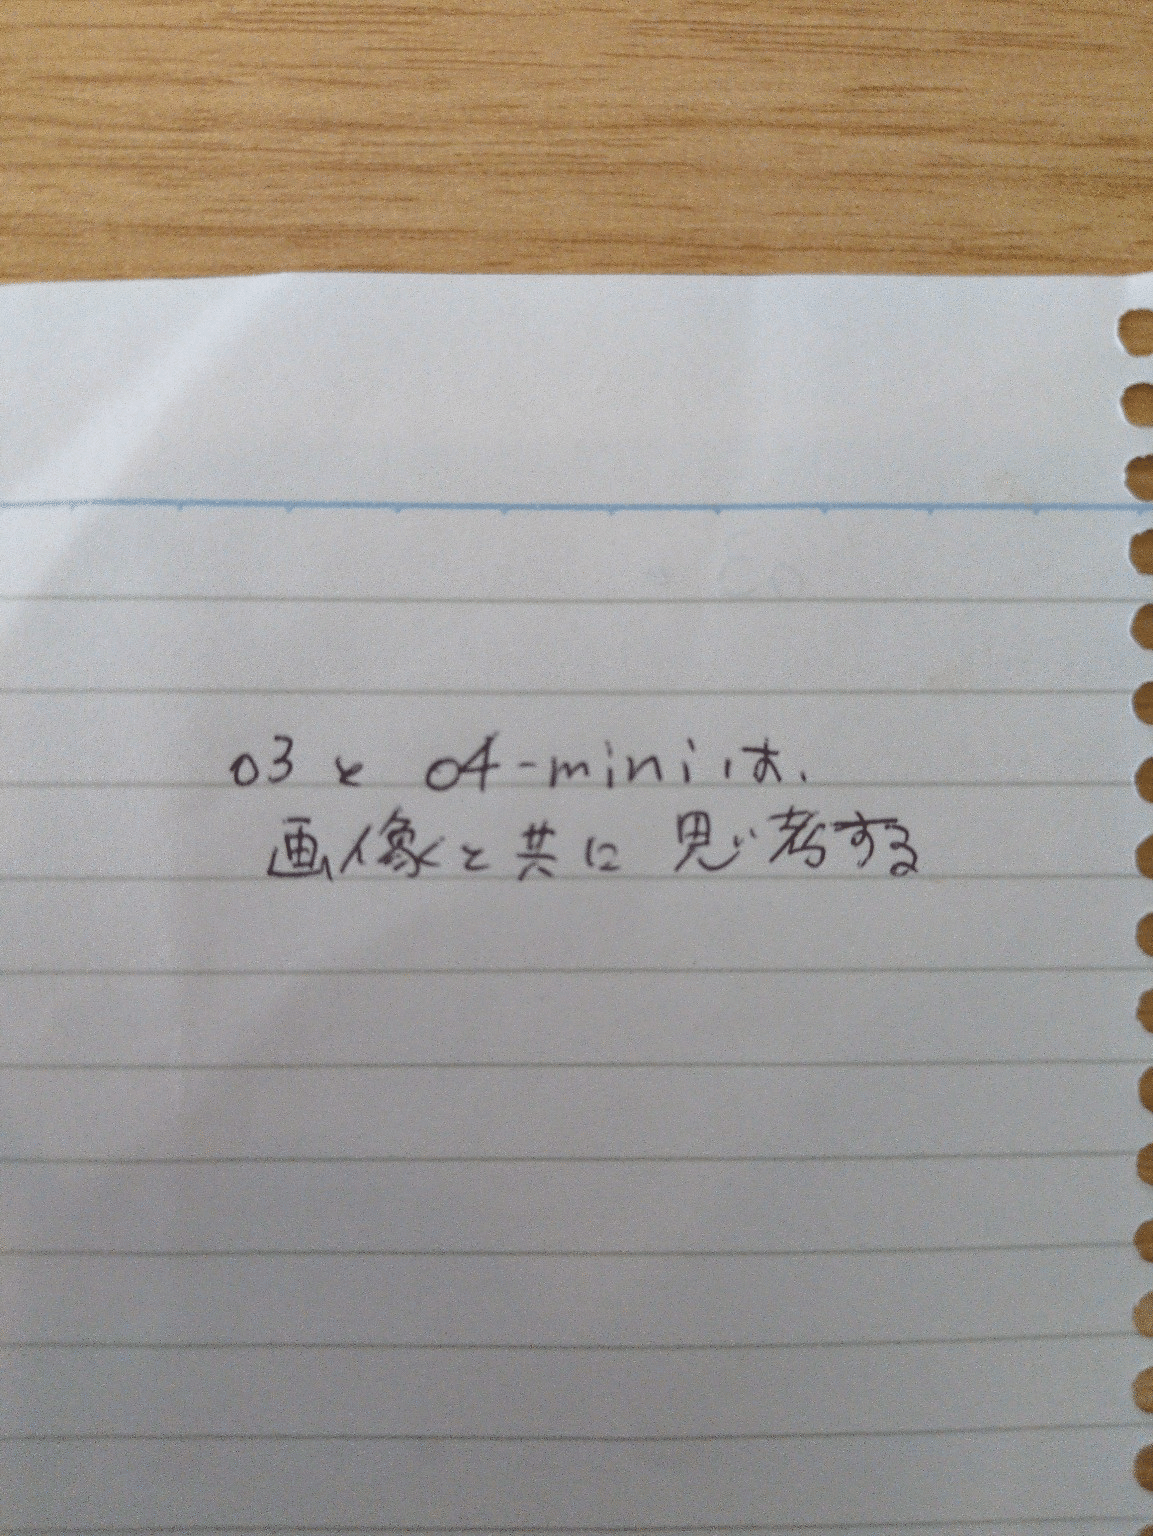 o3と o4-miniは、
画像と共に思考する